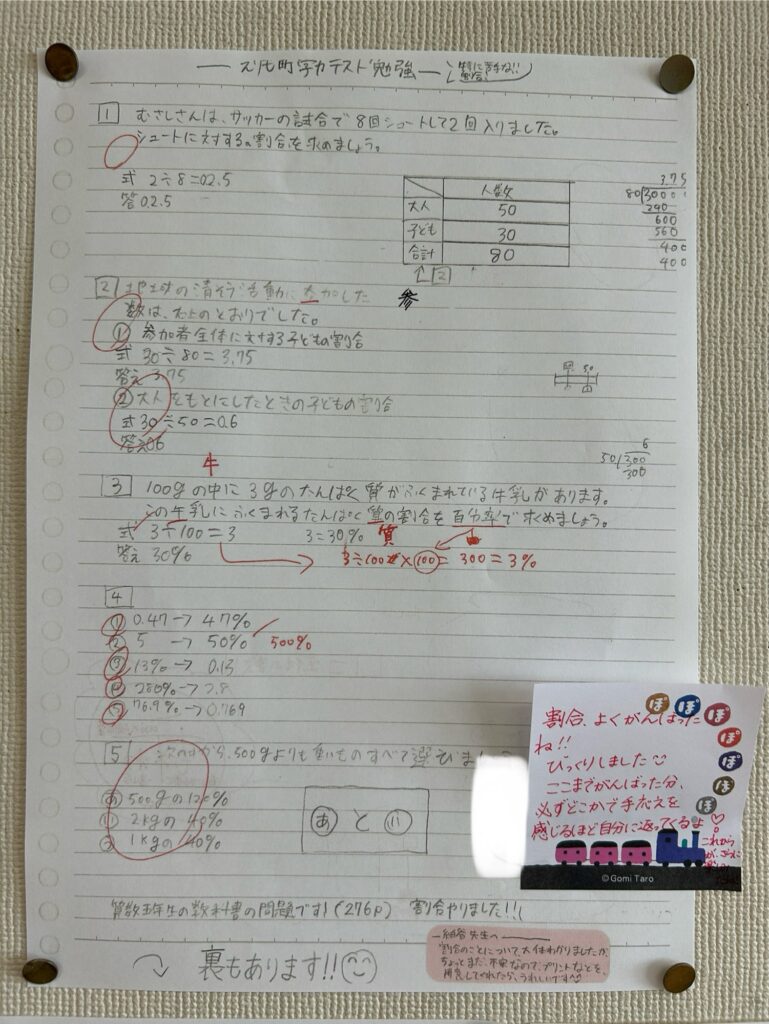 学力テスト勉強
1 むさしさんは、サッカーの試合で8回シュートして2回入りました。
シュートに対する割合を求めましょう。
式 2÷8=02.5
答 0.2.5
人数
大人 50
子ども 30
合計 80
↑2
3.75
80)3000
240
600
560
400
400
2 地域の清そう活動に参加した
参
数は、右上のとおりでした。
① 参加者全体に対する子どもの割合
式 30÷80=3.75
答え 3.75
② 大人をもとにしたときの子どもの割合
式 30÷50=0.6
答え 06
6
50)300
300
牛
3 100gの中に3gのたんぱく質がふくまれている牛乳があります。
この牛乳にふくまれるたんぱく質の割合を百分率で求めましょう。
式 3÷100=3 3=30% 質
答え 30% 3÷100×100=300=3%
4
① 0.47→47%
② 5→50% 500%
③ 13%→0.13
④ 280%→2.8
⑤ 76.9%→0.769
5 次の中から、500gよりも重いものすべて選びましょう
あ 500gの120%
い 2kgの40%
う 1kgの40%
あ と い
算数五年生の教科書の問題です!(276p) 割合やりました!!
裏もあります!!
先生へ
割合のことについて、大体わかりましたが、
ちょっとまだ、不安なので、プリントなどを、
用意してくれたら、うれしいです
ぽ ぽ ぽ ぽ ぽ ぽ ぽ
割合、よくがんばった
ね!!
びっくりしました
ここまでがんばった分、
必ずどこかで手応えを
感じるほど自分に返ってくるよ♡
これから
©Gomi Taro